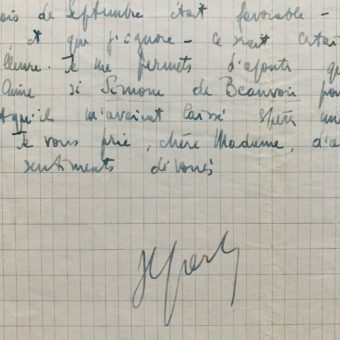 ois de Septembre était favorable -
et que j'ignore - ce serait certai
lleure. Je me permets d'ajouter qu
si Simone de Beauvoir pou
qu'il m'avaient laissé espérer une
Je vous prie, chère Madame, d'a
sentiments dévoués